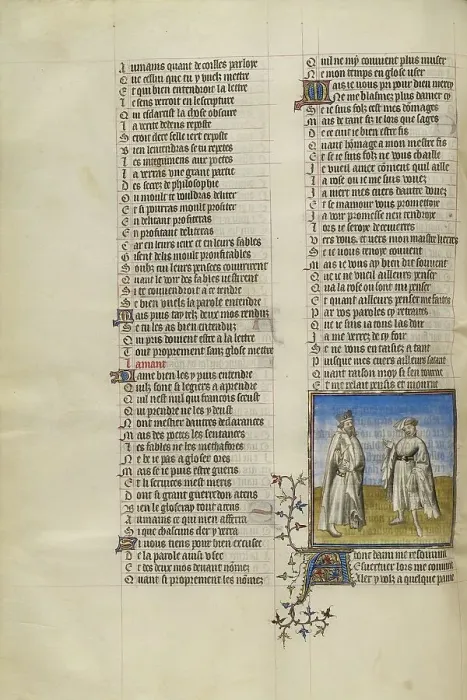 Aumains quant de coilles parloye
Que cellui que tu y vuelz mettre
Et qui bien entendroit la lettre
Le sens verroit en lescripture
Qui esclarcist la chose obscure
La verte dedens reposte
Seroit clere selle iert exposte
Bien lentendras se tu repetes
Les integumens aux poetes
La verras une grant partie
Des secrez de philosophie
Ou moult te vouldras deliter
Et si pourras moult profiter
En delitant profiteras
En profitant deliteras
Car en leurs ieux et en leurs fables
Gisent deliz moult profitables
Soubz qui leurs pensees couvrirent
Quant le voir des fables vestirent
Si te couvendroit a ce tendre
Se bien vuels la parole entendre
Mais puis tay telz deux mos renduz
Se tu les as bien entenduz
Qui pris doivent estre a la lettre
Tout proprement sanz glose mettre
Lamant
Dame bien les y puis entendre
Quilz sont si legiers a aprendre
Quil nest nul qui francois sceust
Qui prendre ne les y deust
Nont mestier dautres declarances
Mais des poetes les sentances
Les fables ne les methafores
Ne be ie pas a gloser ores
Mais se ie puis estre gueris
Et li services mest meris
Dont si grant guerredon atens
Bien le gloseray tout atens
Aumains ce qui men afferra
Si que chascuns cler y verra
Si vous tiens pour bien excusee
De la parole ainsi usee
Et des deux mos devant nomez
Quant si proprement les nomez
Quil ne my couvient plus muser
Ne mon temps en glose user
Mais ie vous pri pour dieu mercy
Ne me blasmez plus damer cy
Se ie suis folz cest mes domages
Mais de tant sui ie lors que sages
De ce cuit ie bien estre fis
Quant homage a mon mestre fis
Et se ie suis folz ne vous chaille
Je vueil amer coment quil aille
La rose ou ie me suis vouez
Ja niert mes cuers dautre douez
Et se mamour vous promettoie
Ja voir promesse nen rendroye
Lors ie seroye decevierres
Vers vous et vers mon maistre lierres
Se ie vous tenoye couvent
Mais ie vous ay bien dit souvent
Que ie ne vueil ailleurs penser
Qua la rose ou sont mi penser
Et quant ailleurs penser me faites
Par vos paroles cy retraites
Que ie suis ia tous las doir
Ja me verrez de cy foir
Se ne vous en taisiez a tant
Puisque mes cuers ailleurs satant
Quant raison moy si sen tourne
Et me relait pensis et mourne
Adont damis me resouvint
Esvertuer lors me convint
Aler y voil a quelque paine